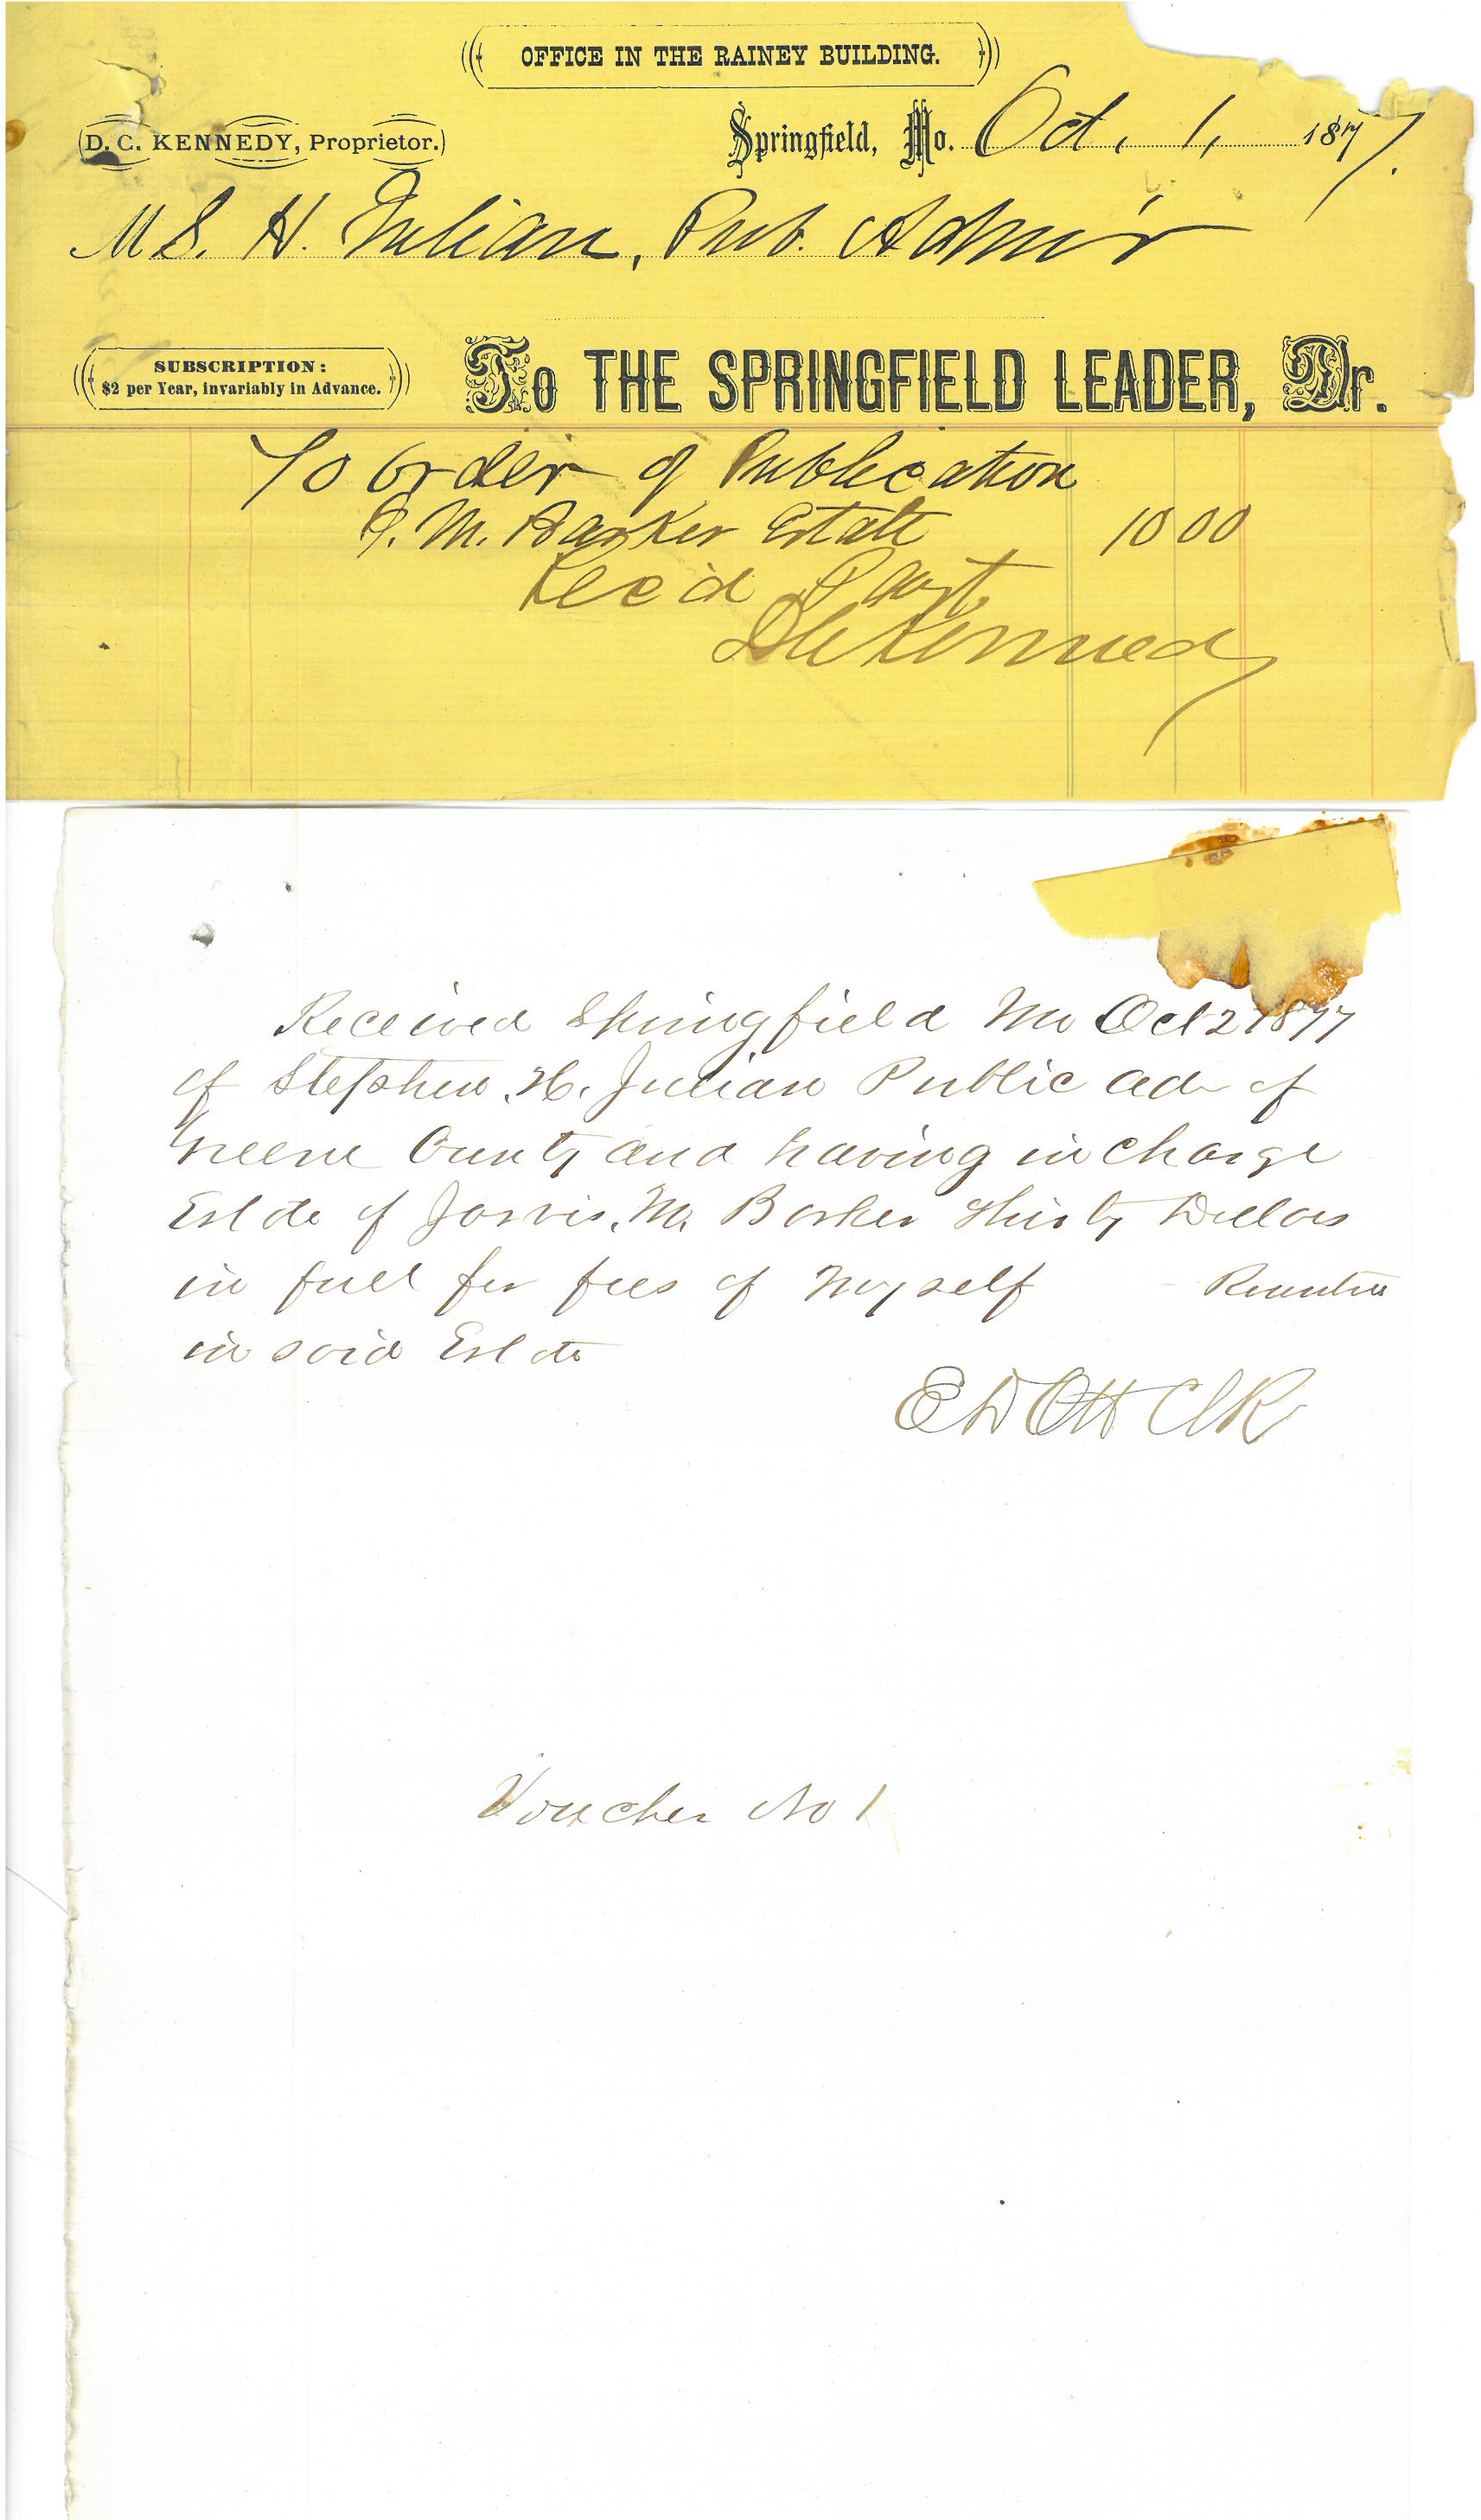 OFFICE IN THE RAINEY BUILDING.
D. C. KENNEDY, Proprietor.
Springfield, Mo. Oct. 1, 1877.
M S. H. Julian, Pub. Admr
SUBSCRIPTION:
$2 per Year, invariably in Advance.
To THE SPRINGFIELD LEADER, Dr.
To Order of Publication
J. M. Barker Estate 10 00
Rec'd Payt.
D C Kennedy
Received Springfield Mo Oct 2 1877
of Stephen H. Julian Public ad of
Greene County and having in charge
Estate of Jarvis M. Barker Thirty Dollars
in full for fees of myself Rountree
in said Estate
E D Ott Clk
Voucher No 1